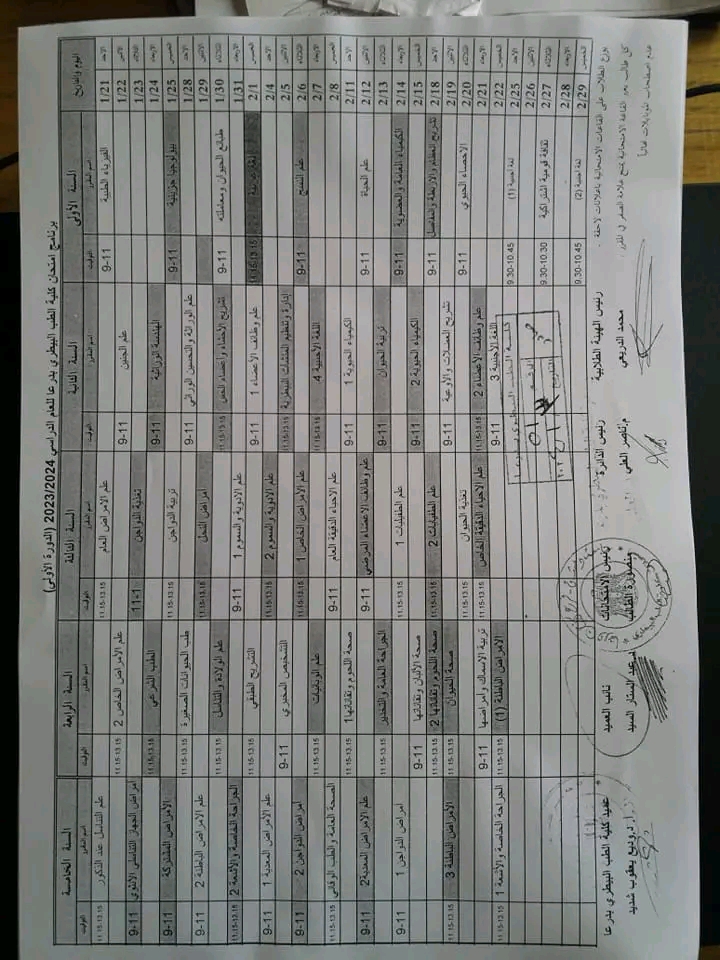 برنامج امتحان كلية الطب البيطري بدرعا للعام الدراسي 2023/2024 (الدورة الأولى)
اليوم والتاريخ السنة الأولى السنة الثانية السنة الثالثة السنة الرابعة السنة الخامسة
اسم المقرر التوقيت اسم المقرر التوقيت اسم المقرر التوقيت اسم المقرر التوقيت اسم المقرر التوقيت
الاحد 1/21 الفيزياء الطبية 9-11 علم الامراض العام 11.15-13.15 علم التناسل عند الذكور 11.15-13.15
الاثنين 1/22 علم الجنين 9-11 علم الامراض الخاص 2 11.15-13.15
الثلاثاء 1/23 تغذية الدواجن 11-1 امراض الجهاز التناسلي الأنثوي 9-11
الاربعاء 1/24 الهندسة الوراثية 9-11 الطب الشرعي 11.15-13.15
الخميس 1/25 بيولوجيا جزيئية 9-11 تربية الدواجن 11.15-13.15 الامراض المشتركة 9-11
الاحد 1/28 علم الوراثة والتحسين الوراثي 9-11 طب الحيوانات الصغيرة 11.15-13.15
الاثنين 1/29 امراض النحل 11.15-13.15 علم الأمراض الباطنة 2 9-11
الثلاثاء 1/30 طبائع الحيوان ومعاملته 9-11 تشريح الاحشاء وأعضاء الحس 11.15-13.15 علم الولادة والتناسل 11.15-13.15
الاربعاء 1/31 علم الادوية والسموم 1 9-11 الجراحة الخاصة والأشعة 2 11.15-13.15
الخميس 2/1 11.15-13.15 علم وظائف الأعضاء 1 9-11 التشريح الطبقي 11.15-13.15
الاحد 2/4 علم الادوية والسموم 2 11.15-13.15 علم الأمراض المعدية 1 9-11
الاثنين 2/5 إدارة وتنظيم المنشآت البيطرية 11.15-13.15 التشخيص المخبري 9-11
الثلاثاء 2/6 علم النسج 9-11 علم الامراض الخاص 1 11.15-13.15 امراض الدواجن 2 9-11
الاربعاء 2/7 اللغة الأجنبية 4 9-11 علم الوبائيات 11.15-13.15
الخميس 2/8 علم الاحياء الدقيقة العام 9-11 الصحة العامة والطب الوقائي 11.15-13.15
الاحد 2/11 الكيمياء الحيوية 1 9-11 صحة اللحوم وتقاناتها1 11.15-13.15
الاثنين 2/12 علم الحياة 9-11 علم وظائف الأعضاء المرضي 9-11 علم الأمراض المعدية2 9-11
الثلاثاء 2/13 تربية الحيوان 9-11 الجراحة العامة والتخدير 11.15-13.15
الاربعاء 2/14 الكيمياء العامة والعضوية 9-11 علم الطفيليات 1 11.15-13.15 امراض الدواجن 1 9-11
الخميس 2/15 الكيمياء الحيوية 2 9-11 صحة الألبان وتقاناتها 9-11
الاحد 2/18 تشريح العظام والاربطة والمفاصل 9-11 علم الطفيليات 2 11.15-13.15 صحة اللحوم وتقاناتها 2 11.15-13.15
الاثنين 2/19 تشريح العضلات والأوعية 9-11 صحة الحيوان 11.15-13.15 الأمراض الباطنة 3 11.15-13.15
الثلاثاء 2/20 الاحصاء الحيوي 9-11 تغذية الحيوان 11.15-13.15
الاربعاء 2/21 علم وظائف الأعضاء 2 11.15-13.15 علم الاحياء الدقيقة الخاص 11.15-13.15 تربية الاسماك وامراضها 9-11
الخميس 2/22 اللغة الأجنبية 3 الامراض الباطنة (1) 11.15-13.15 الجراحة الخاصة والأشعة 1 11.15-13.15
الاحد 2/25 لغة اجنبية (1) 9.30-10.45
الاثنين 2/26
الثلاثاء 2/27 ثقافة قومية اشتراكية 9.30-10.30
الاربعاء 2/28
الخميس 2/29 لغة اجنبية (2) 9.30-10.45
يوزع الطلاب على القاعات الامتحانية باعلانات لاحقة .
كل طالب يجد القاعة الامتحانية يمنح علامة الصفر في المقرر .
عدم اصطحاب الموبايلات نهائياً
رئيس الهيئة الطلابية رئيس الدائرة رئيس الامتحانات نائب العميد عميد كلية الطب البيطري بدرعا
محمد الدريعي د.عبد الستار السيد ا.د.وديع يعقوب شديد